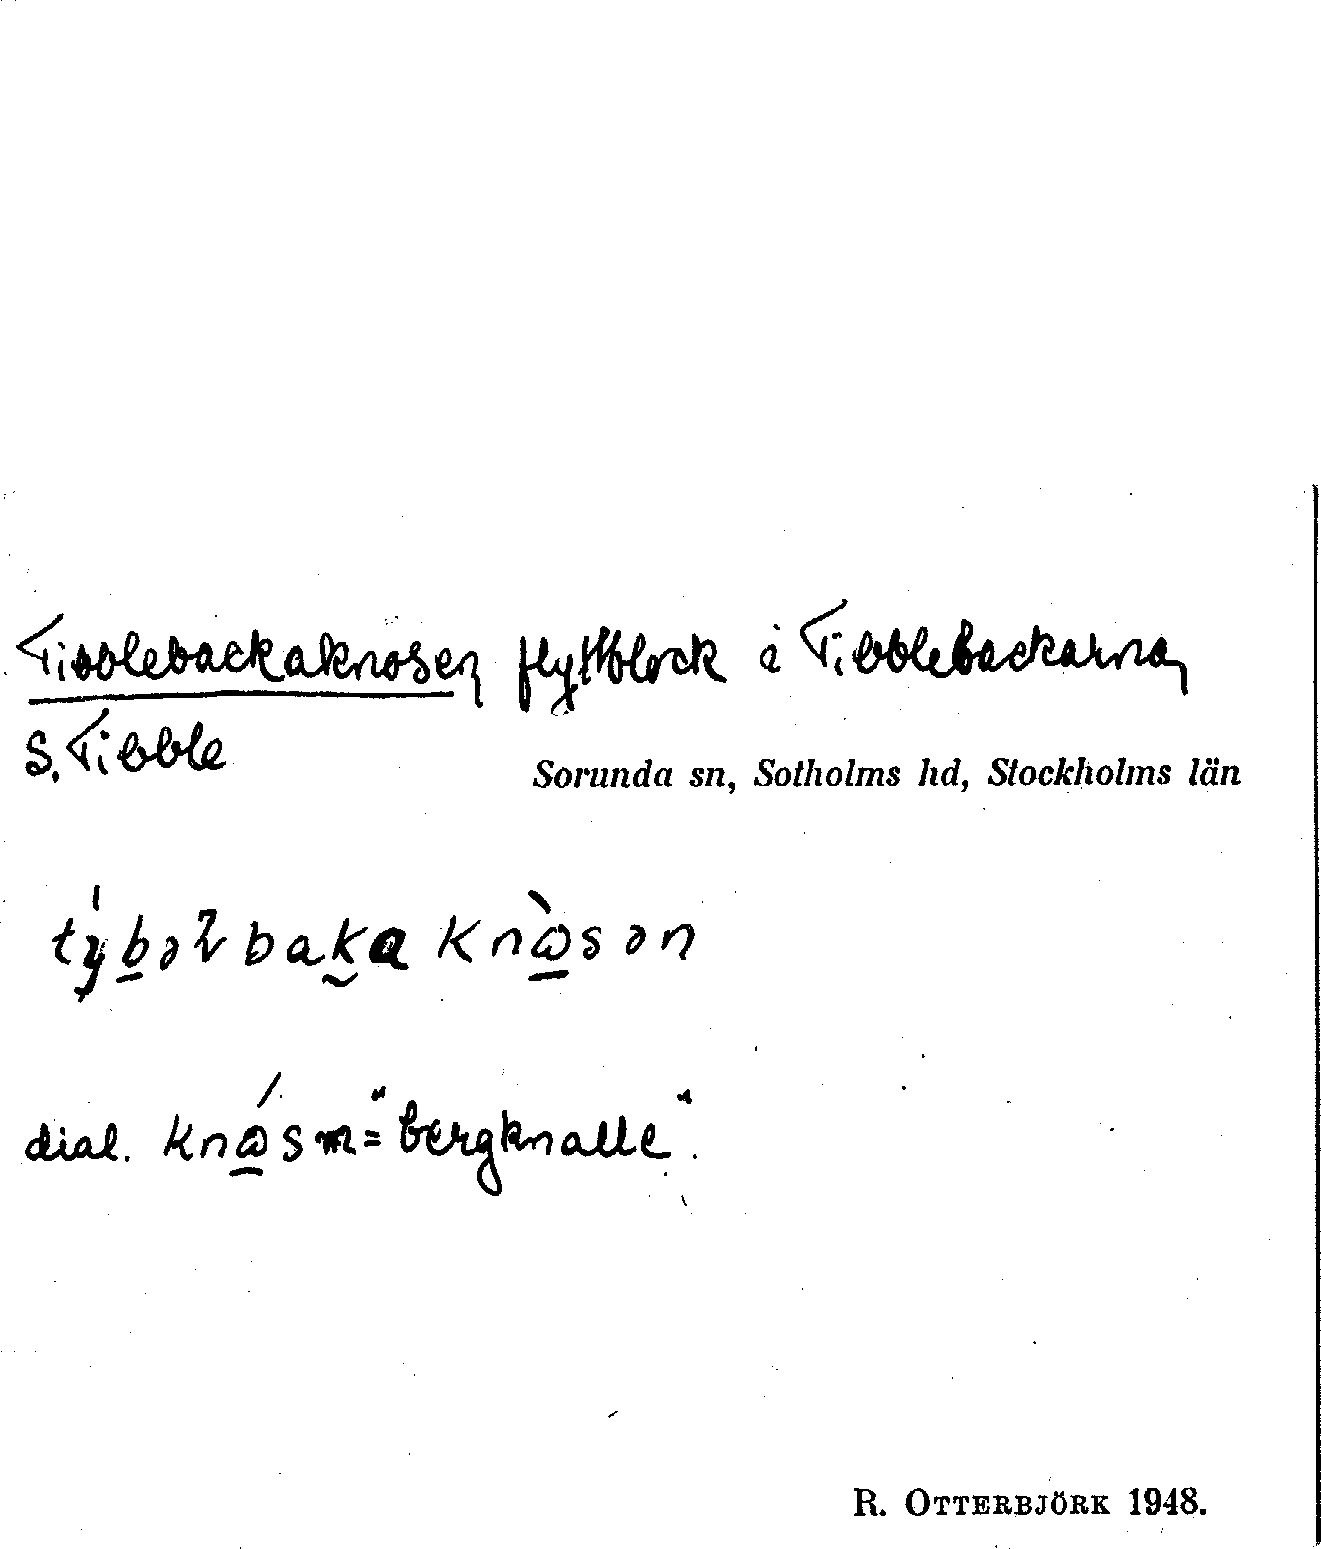 Tibblebackaknosen flyttblock i Tibblebackarna,
S. Tibble
Sorunda sn, Sotholms hd, Stockholms län
dial. m = "bergknalle".
R. OTTERBJÖRK 1948.